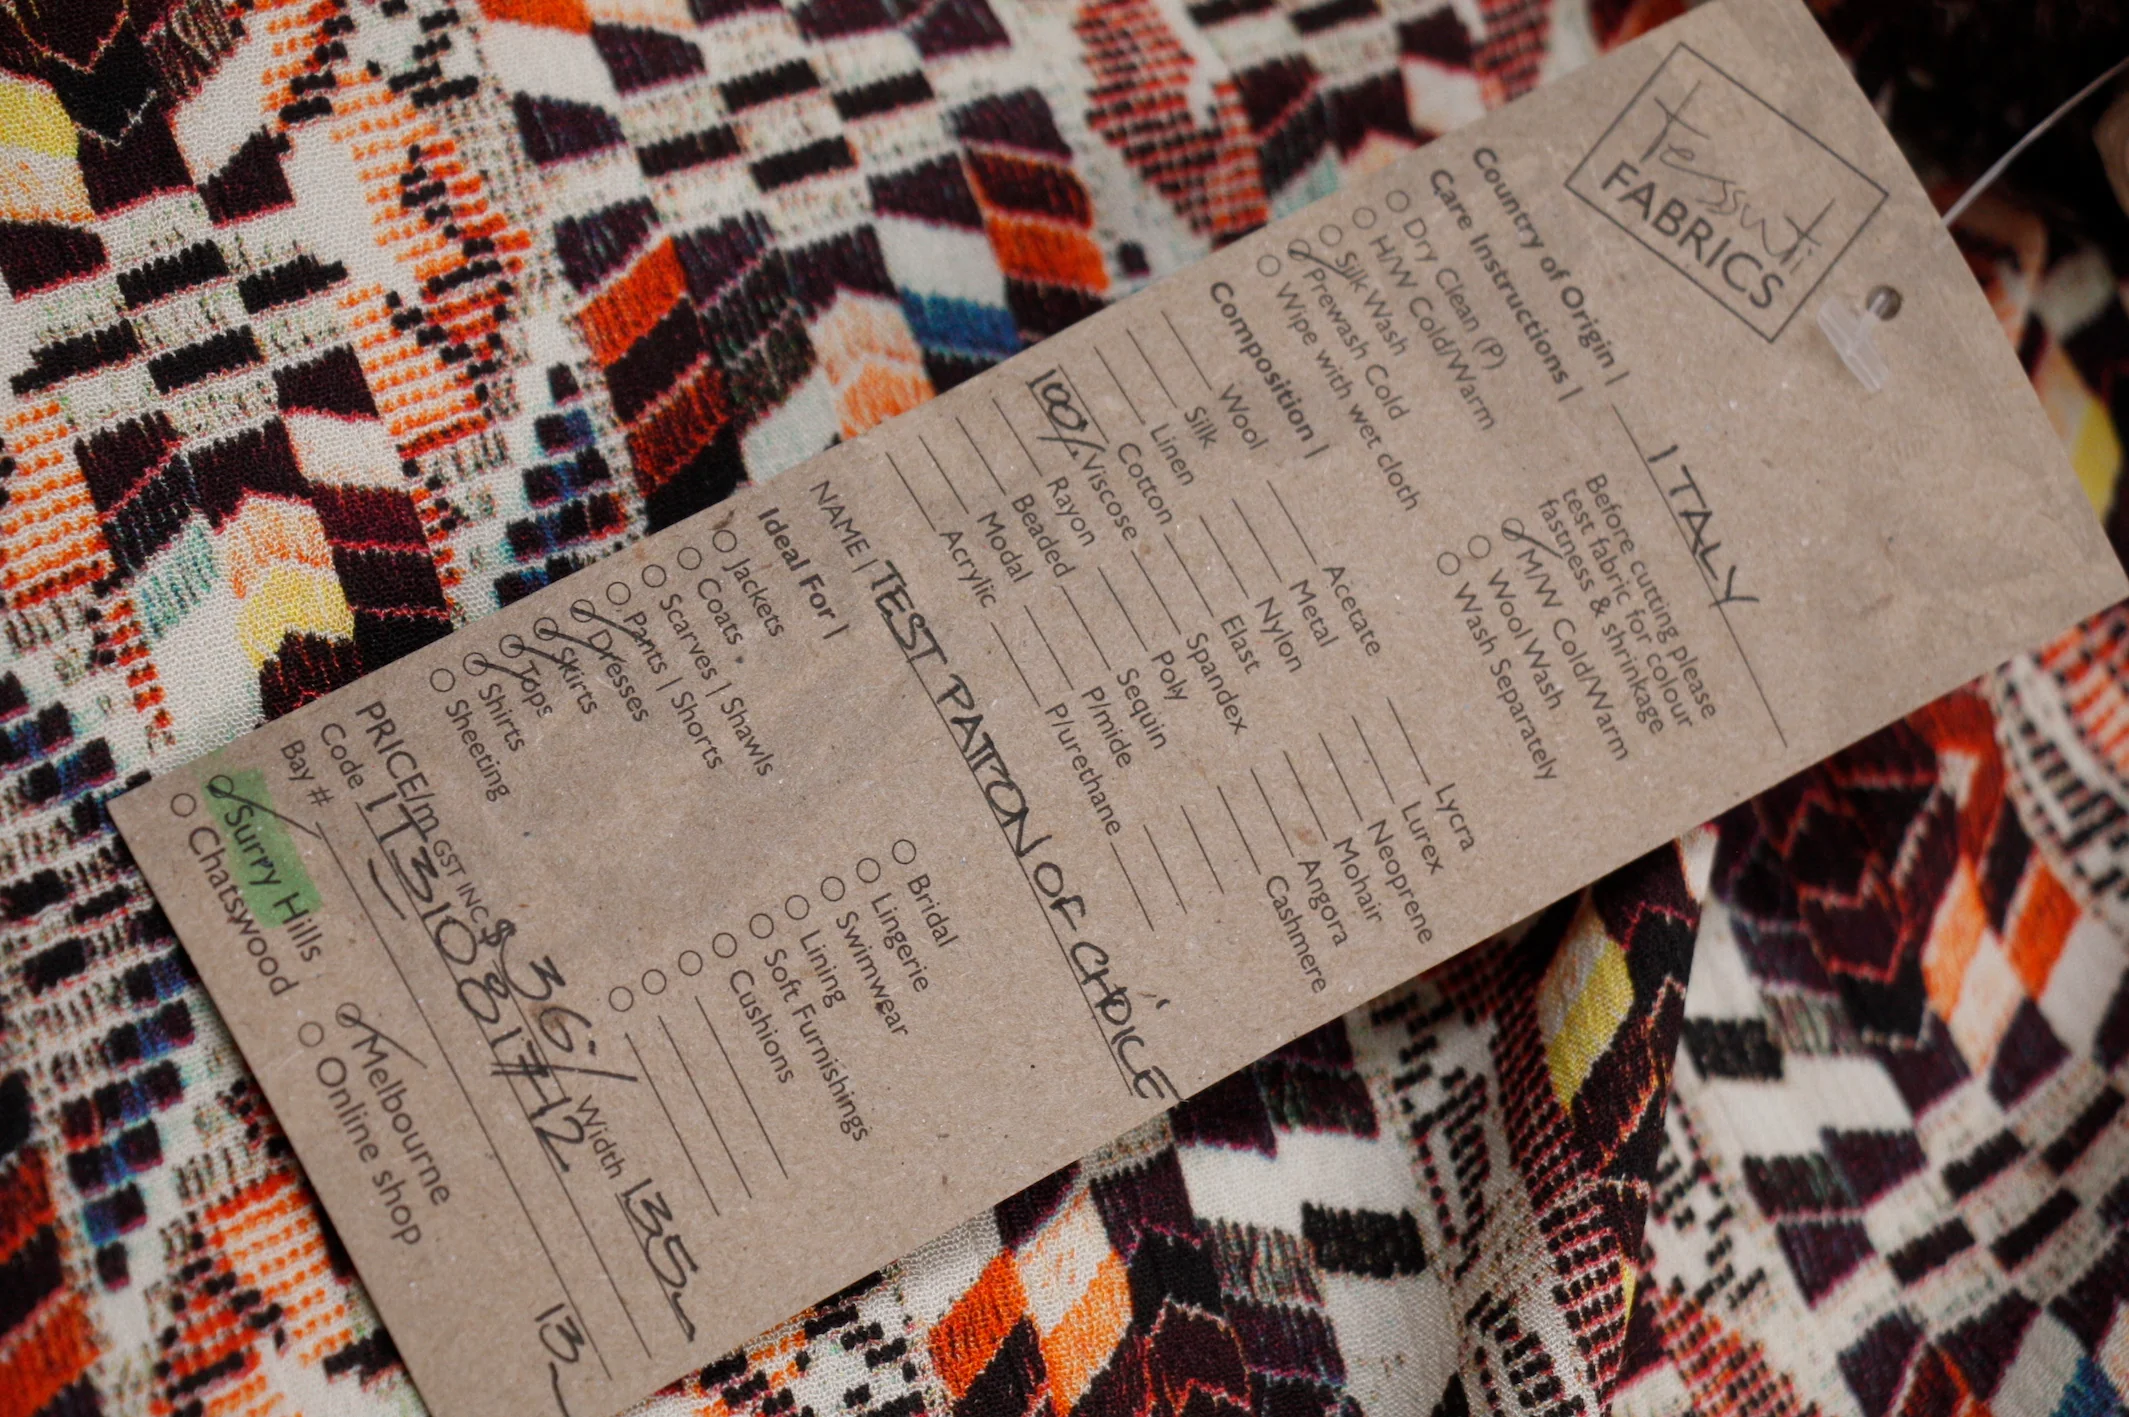 Tessuti
FABRICS
Country of Origin | ITALY
Care Instructions |
Before cutting please
test fabric for colour
fastness & shrinkage
Dry Clean (P)
H/W Cold/Warm
Silk Wash
Prewash Cold
Wipe with wet cloth
M/W Cold/Warm
Wool Wash
Wash Separately
Composition |
Wool
Silk
Linen
Cotton
100% Viscose
Rayon
Beaded
Modal
Acrylic
Acetate
Metal
Nylon
Elast
Spandex
Poly
Sequin
P/mide
P/urethane
Lycra
Lurex
Neoprene
Mohair
Angora
Cashmere
NAME | TEST PATTON OF CHOICE
Ideal For |
Jackets
Coats
Scarves | Shawls
Pants | Shorts
Dresses
Skirts
Tops
Shirts
Sheeting
Bridal
Lingerie
Swimwear
Lining
Soft Furnishings
Cushions
PRICE/m GST INC $ 36 Width 135
Code IT310817-12
Bay # 13
Surry Hills
Chatswood
Melbourne
Online shop